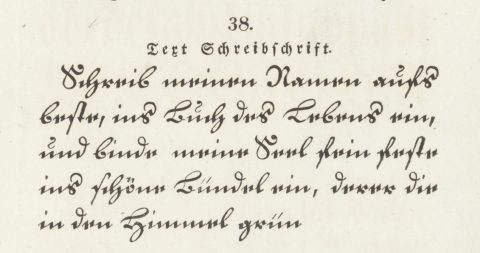 38.
Text Schreibschrift.
Schreib meinen Namen aufs
beste, ins Buch des Lebens ein,
und binde meine Seel fein feste
ins schöne Bündel ein, derer die
in den Himmel grün